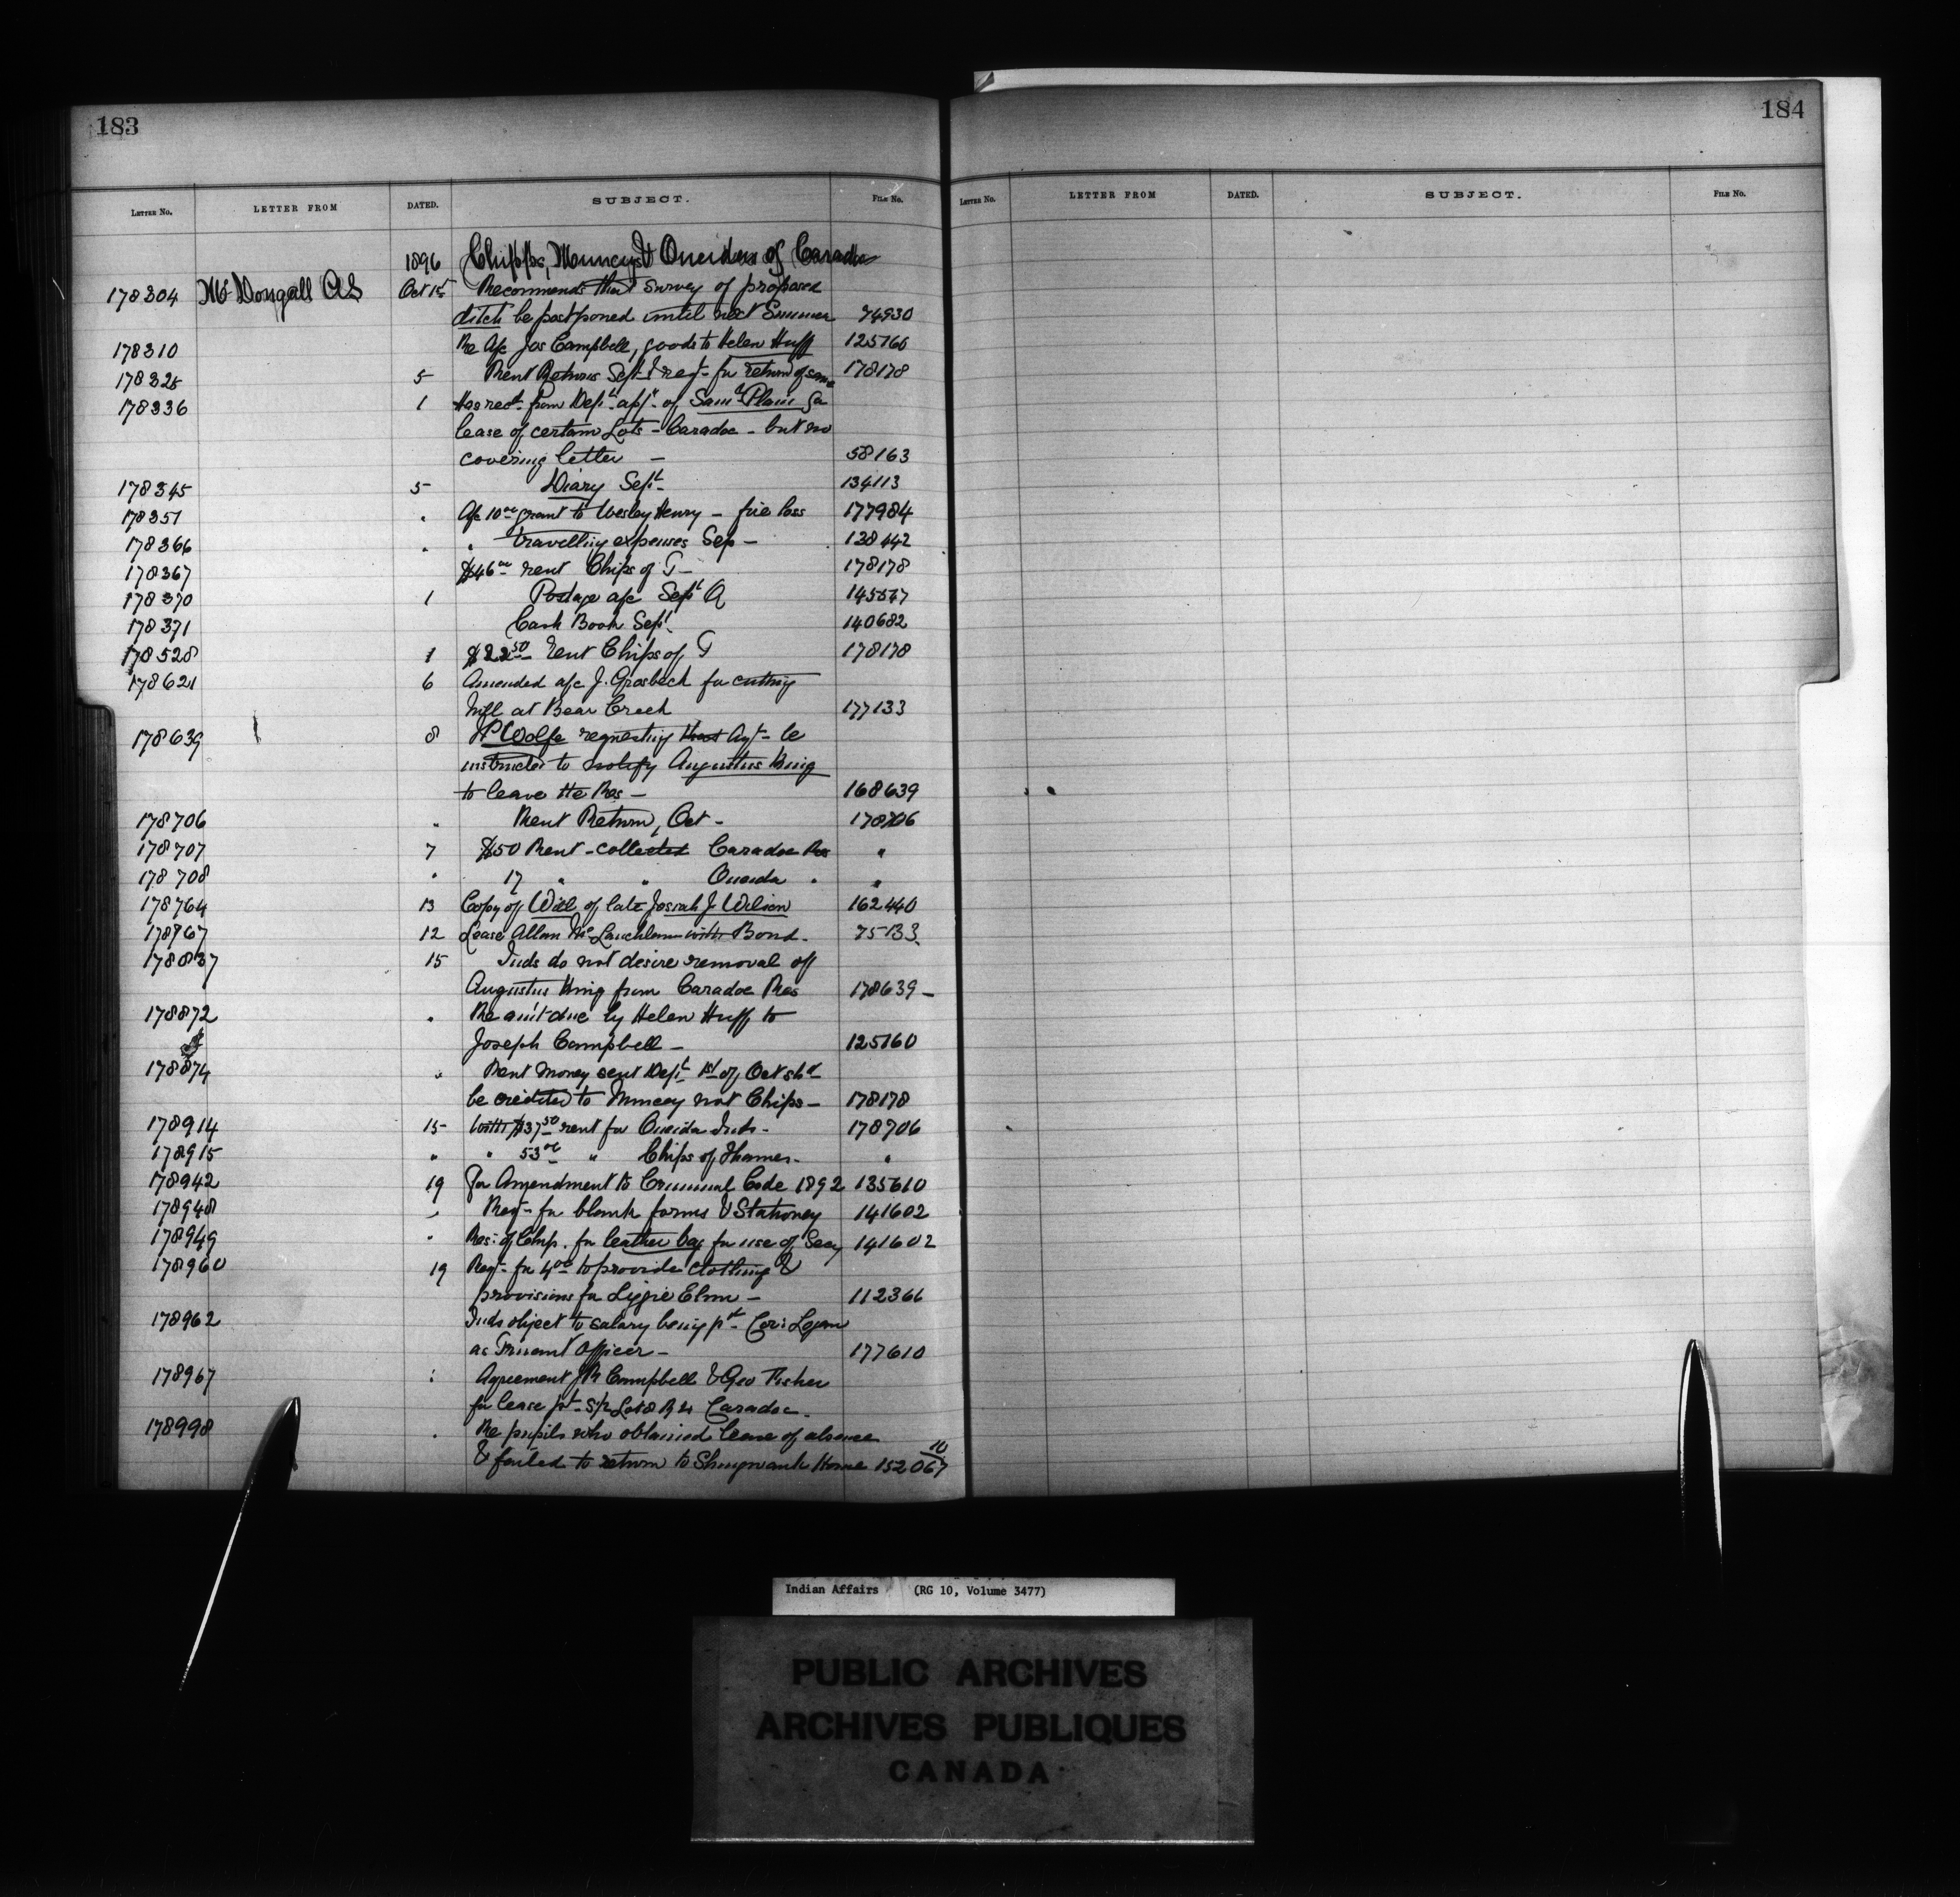 183
LETTER No. LETTER FROM DATED. SUBJECT. FILE No.
1896 Chipps, Munceys & Oneidas of Caradoc
178304 McDougall A.S Oct 1st Recommends that survey of proposed
ditch be postponed until next Summer 74930
178310 Re A/c Jos Campbell, goods to Helen Huff 125160
178325 5 Rent Returns Sept & req- for return of same 178178
178336 1 Has recd from Dept appn of Saml Plain for
lease of certain Lots - Caradoc - but no
covering letter - 58163
178345 5 Diary Sept 134113
178351 " A/c 10.00 grant to Wesley Henry - fire loss 177984
178366 " " travelling expenses Sep - 138442
178367 $46.00 rent Chips of T - 178178
178370 1 Postage a/c Sept Q
178371 Cash Book Sept 140682
178528 1 $22.50 rent Chips of T 178178
178621 6 Amended a/c J. Grosbeck for cutting
hill at Bear Creek 177133
178639 8 Wolfe requesting that Agt- be
instructed to notify Augustus King
to leave the Res - 168639
178706 " Rent Return, Oct - 178706
178707 7 $50 Rent - collected Caradoc Res "
178708 " 17 " " Oneida " "
178764 13 Copy of Will of late Josiah J Wilson 162440
12 Lease Allan McLauchlan with Bond. 75133
178837 15 Inds do not desire removal of
Augustus King from Caradoc Res 178639 -
178872 " Re amt due by Helen Huff to
Joseph Campbell - 125160
178874 " Rent money sent Dept 1st of Oct shd
be credited to Muncey not Chips - 178178
178914 15 With $37.50 rent for Oneida Inds - 178706
178915 " " 53.00 " Chips of Thames - "
178942 19 For Amendment to Criminal Code 1892 135610
178948 " Req- for blank forms & Stationey 141602
178949 " Res: of Chip. for leather bag for use of Secy 141602
178960 19 Reqt- for 4.00 to provide clothing &
provisions for Lizzie Elm - 112366
178962 Inds object to salary being pd Logan
as Truant Officer - 177610
178967 " Agreement Campbell & Geo Fisher
for lease pt S½ Lot 8 R 4 Caradoc -
178998 " Re pupils who obtained leave of absence
& failed to return to Shingwauk Home 152067/10
184
LETTER No. LETTER FROM DATED. SUBJECT. FILE No.
Indian Affairs (RG 10, Volume 3477)
PUBLIC ARCHIVES
ARCHIVES PUBLIQUES
CANADA